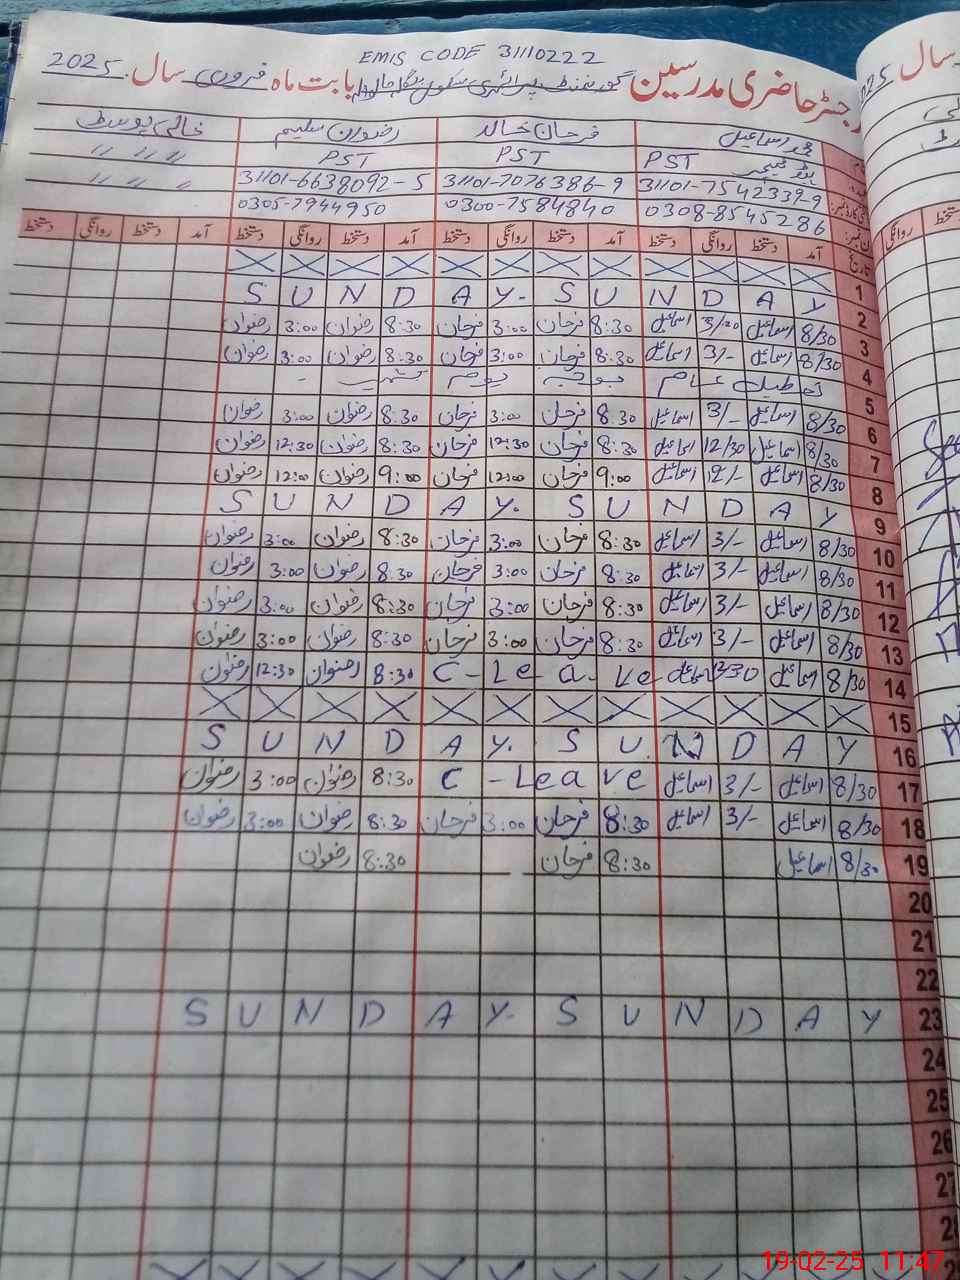 EMIS CODE 31110222
رجسٹر حاضری مدرسین گورنمنٹ پرائمری سکول بابت ماہ فروری سال 2025
محمد اسماعیل فرحان خالد رضوان سلیم خالی پوسٹ
PST PST PST " " "
31101-7542339-9 31101-7076386-9 31101-6638092-5 " " "
0308-8545286 0300-7584840 0305-7944950
تاریخ آمد دستخط روانگی دستخط آمد دستخط روانگی دستخط آمد دستخط روانگی دستخط آمد دستخط روانگی دستخط
1
2 S U N D A Y. S U N D A Y
3 8/30 اسماعیل 3/20 اسماعیل 8:30 فرحان 3:00 فرحان 8:30 رضوان 3:00 رضوان
4 8/30 اسماعیل 3/- اسماعیل 8:30 فرحان 3:00 فرحان 8:30 رضوان 3:00 رضوان
5 تعطیل عام بوجہ یوم کشمیر
6 8/30 اسماعیل 3/- اسماعیل 8:30 فرحان 3:00 فرحان 8:30 رضوان 3:00 رضوان
7 8/30 اسماعیل 12/30 اسماعیل 8:30 فرحان 12:30 فرحان 8:30 رضوان 12:30 رضوان
8 8/30 اسماعیل 12/- اسماعیل 9:00 فرحان 12:00 فرحان 9:00 رضوان 12:00 رضوان
9 S U N D A Y. S U N D A Y
10 8/30 اسماعیل 3/- اسماعیل 8:30 فرحان 3:00 فرحان 8:30 رضوان 3:00 رضوان
11 8/30 اسماعیل 3/- اسماعیل 8:30 فرحان 3:00 فرحان 8:30 رضوان 3:00 رضوان
12 8/30 اسماعیل 3/- اسماعیل 8:30 فرحان 3:00 فرحان 8:30 رضوان 3:00 رضوان
13 8/30 اسماعیل 3/- اسماعیل 8:30 فرحان 3:00 فرحان 8:30 رضوان 3:00 رضوان
14 8/30 اسماعیل 12/30 اسماعیل C-Leave 8:30 رضوان 12:30 رضوان
15
16 S U N D A Y. S U N D A Y
17 8/30 اسماعیل 3/- اسماعیل C-Leave 8:30 رضوان 3:00 رضوان
18 8/30 اسماعیل 3/- اسماعیل 8:30 فرحان 3:00 فرحان 8:30 رضوان 3:00 رضوان
19 8/30 اسماعیل 8:30 فرحان 8:30 رضوان
20
21
22
23 S U N D A Y. S U N D A Y
24
25
26
27
28
19-02-25 11:47